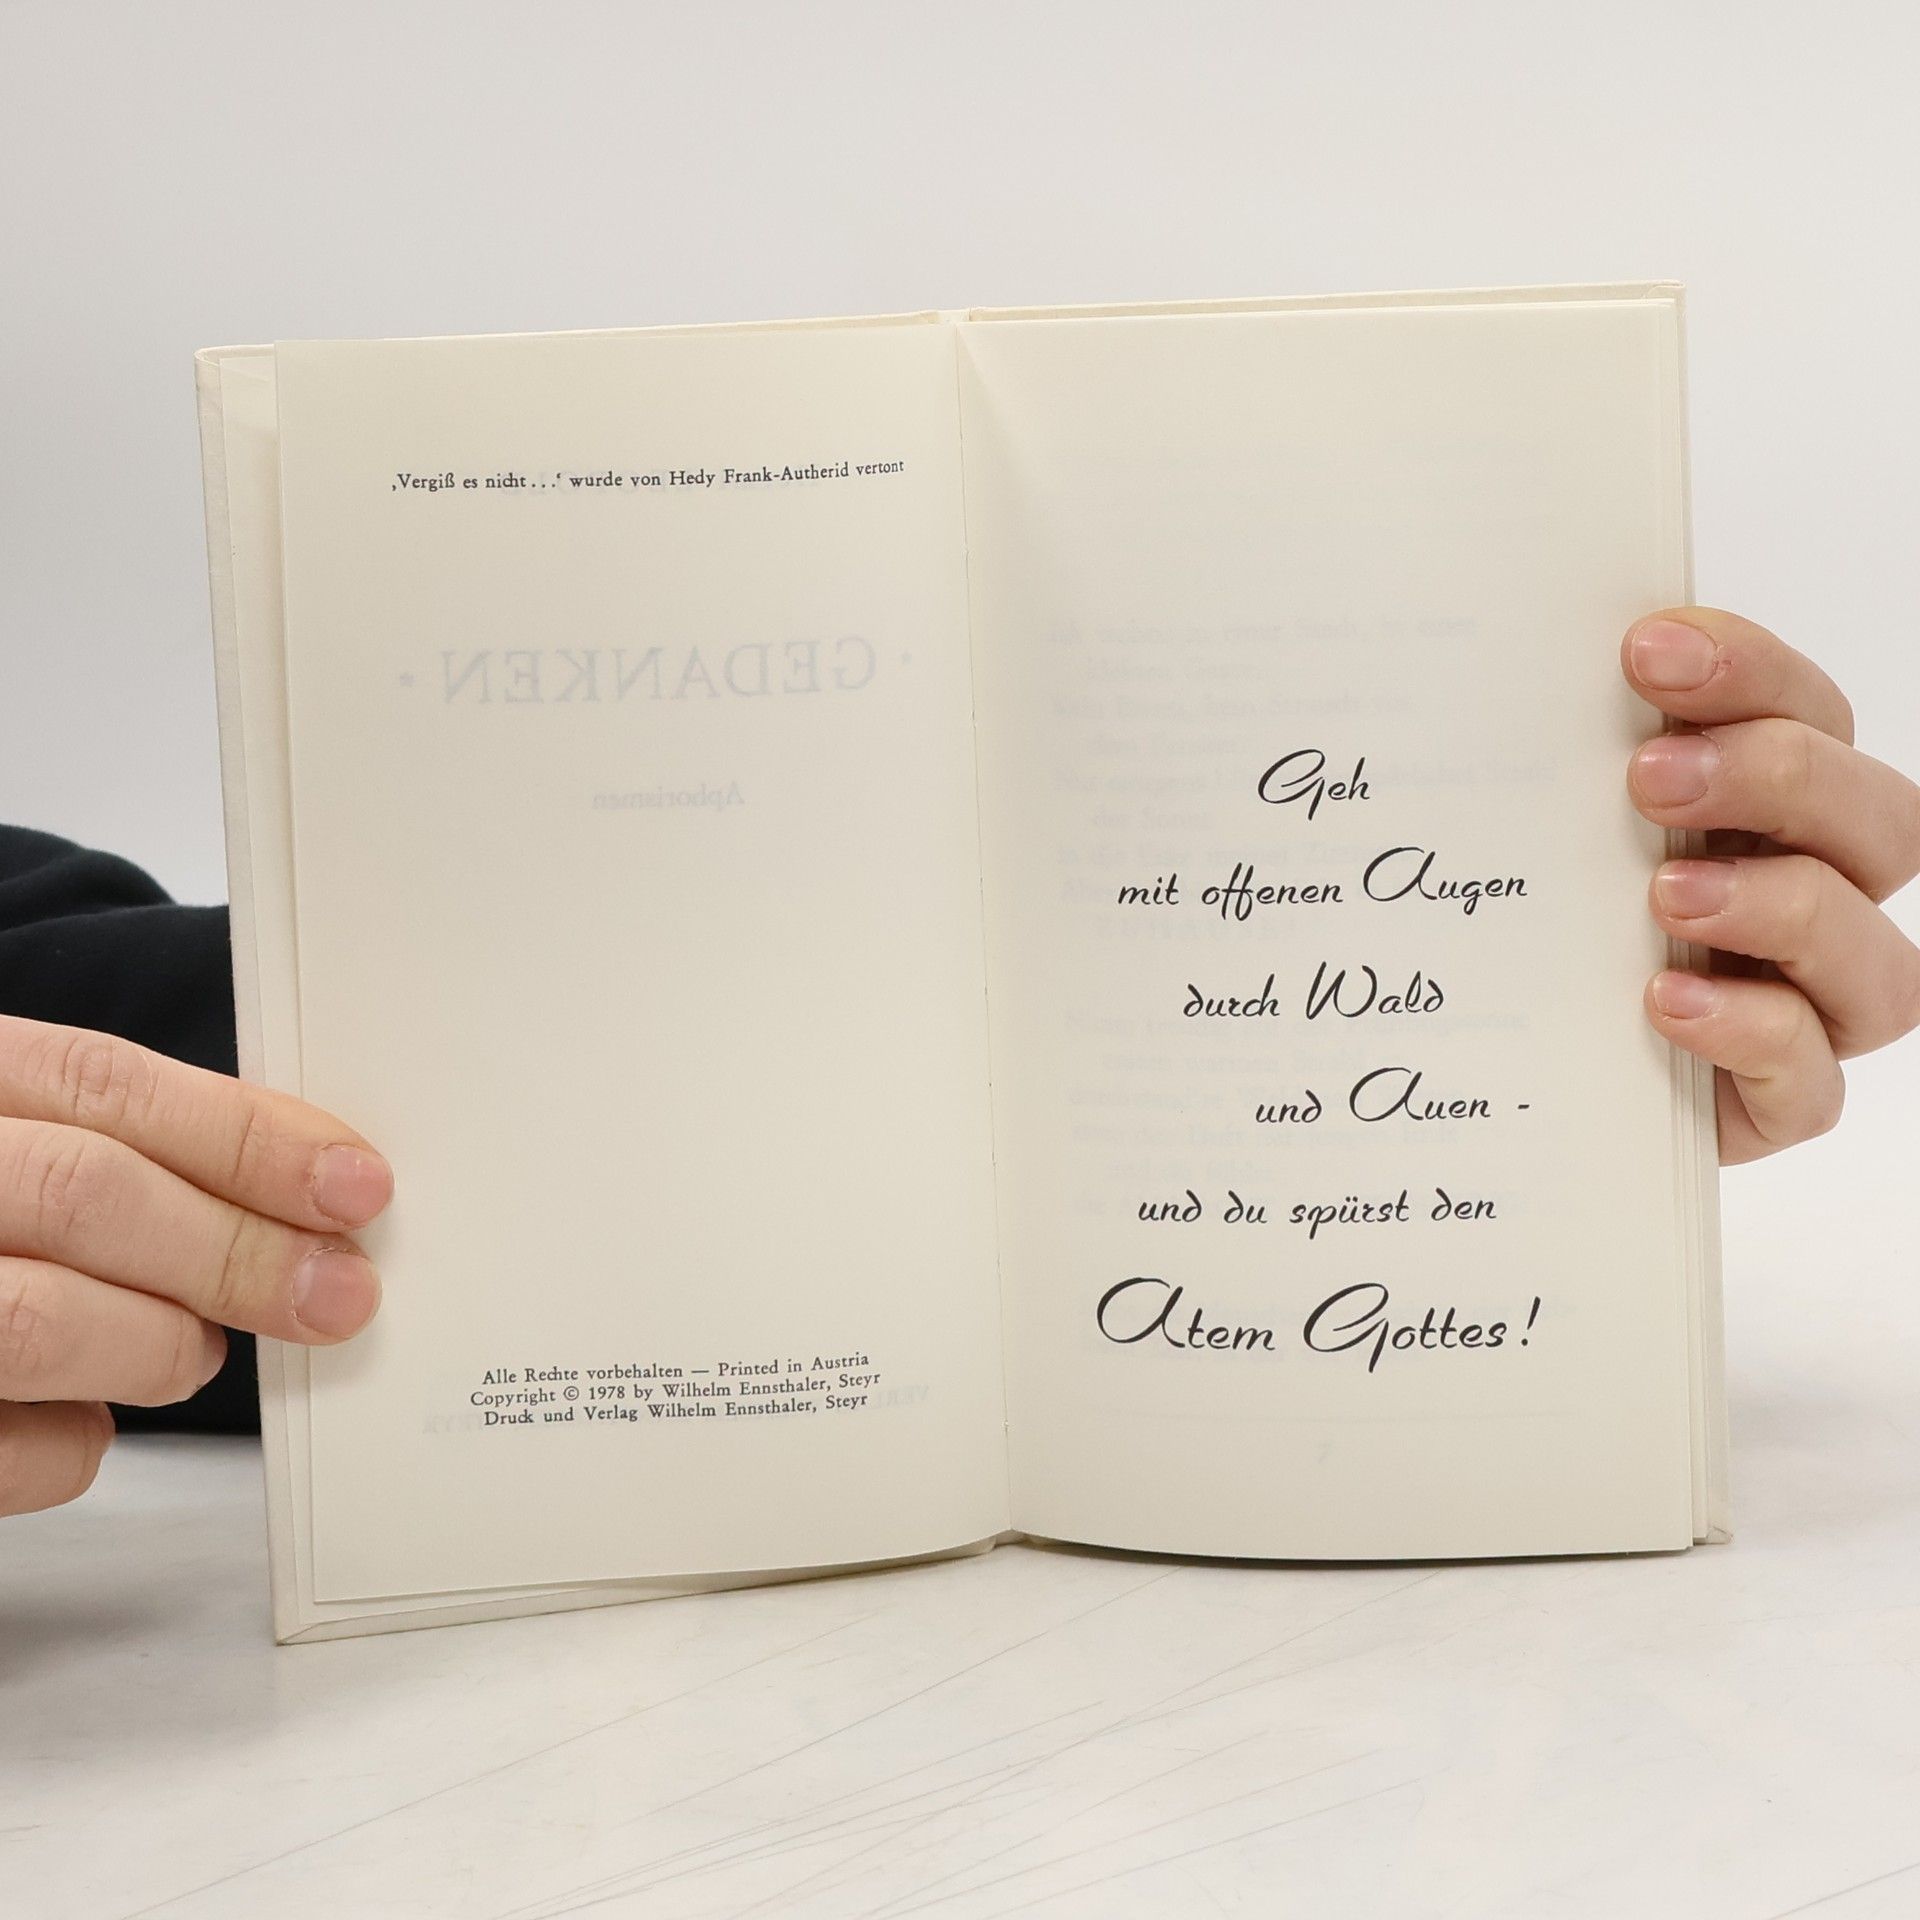 ‚Vergiß es nicht . . .‘ wurde von Hedy Frank-Autherid vertont
· GEDANKEN ·
Aphorismen
Alle Rechte vorbehalten — Printed in Austria
Copyright © 1978 by Wilhelm Ennsthaler, Steyr
Druck und Verlag Wilhelm Ennsthaler, Steyr
Geh
mit offenen Augen
durch Wald
und Auen -
und du spürst den
Atem Gottes!